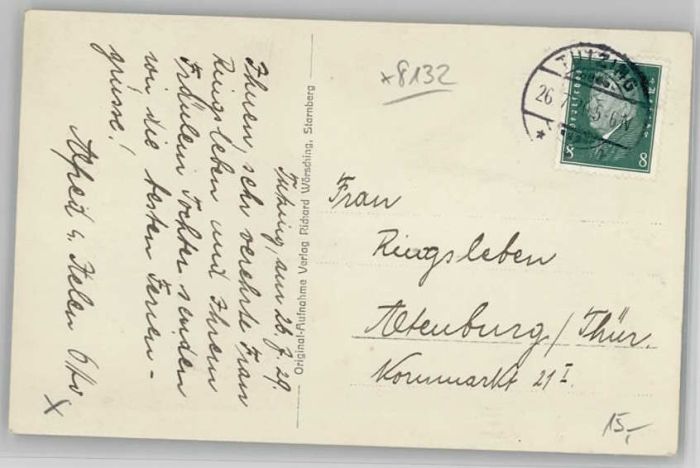 Tutzing am 26.7.29.
Ihnen, sehr verehrte Frau
Ringsleben und Ihrem
Fräulein Tochter senden
wir die besten Ferien-
grüsse!
Alfred u. Helen
Original-Aufnahme Verlag Richard Wörsching, Starnberg
*8132
TUTZING
26.7.
5-6N
8 8
Frau
Ringsleben
Altenburg/Thür.
Kornmarkt 21 I.
15,-
x